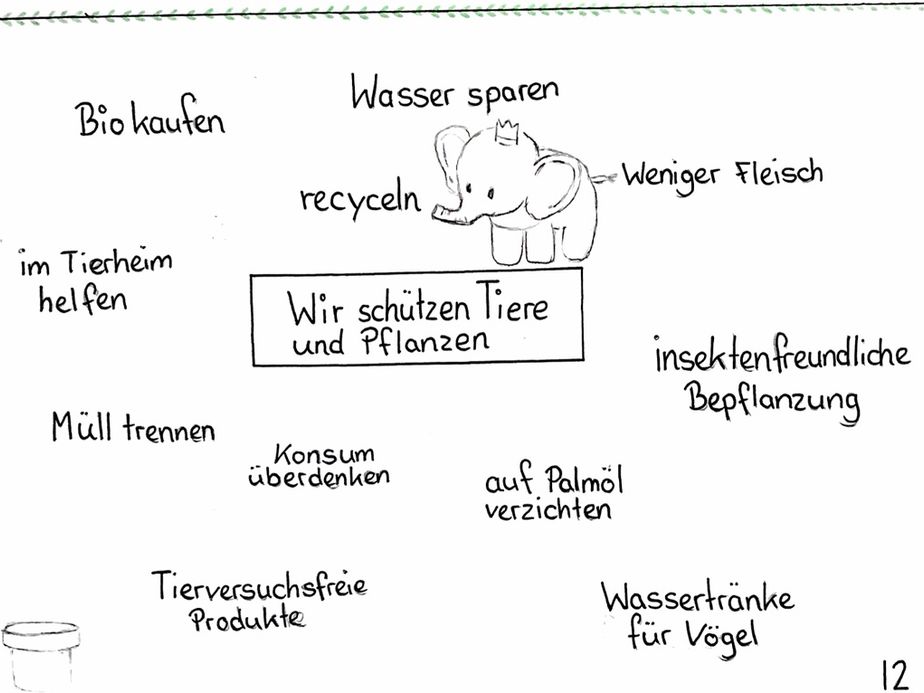 Wasser sparen
Bio kaufen
Weniger Fleisch
recyceln
im Tierheim
helfen
Wir schützen Tiere
und Pflanzen
insektenfreundliche
Bepflanzung
Müll trennen
Konsum
überdenken
auf Palmöl
verzichten
Tierversuchsfreie
Produkte
Wassertränke
für Vögel
12